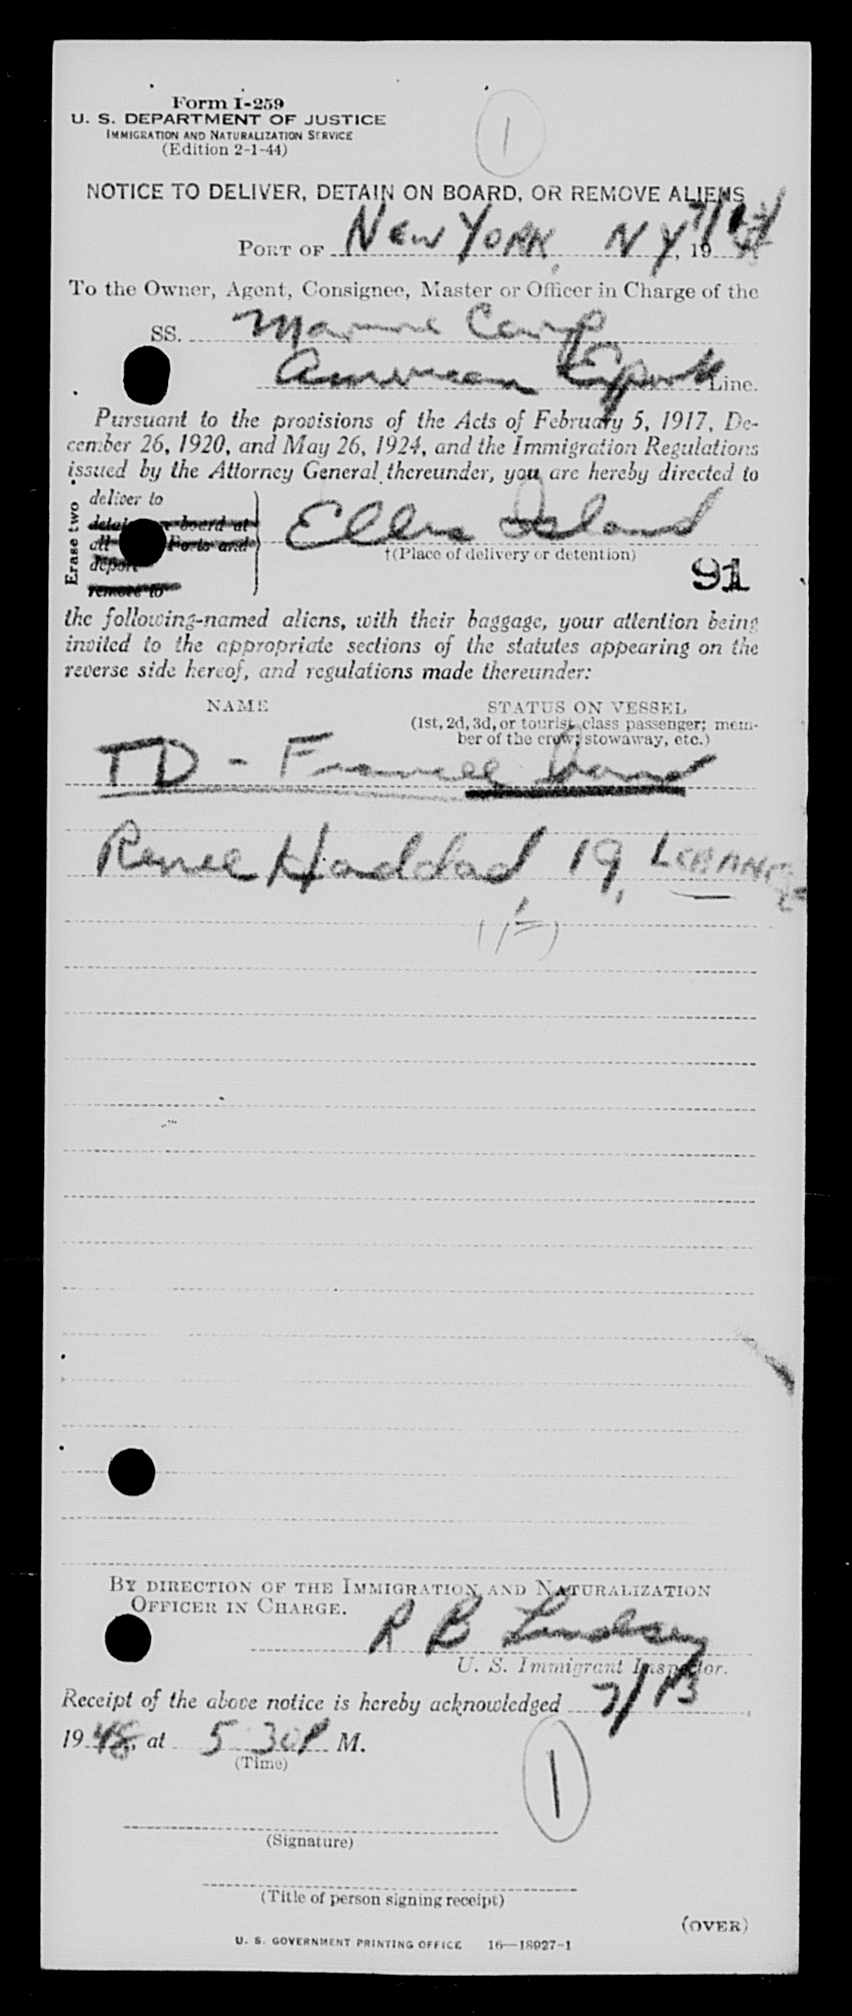 Form I-259
U. S. DEPARTMENT OF JUSTICE
IMMIGRATION AND NATURALIZATION SERVICE
(Edition 2-1-44)
1
NOTICE TO DELIVER, DETAIN ON BOARD, OR REMOVE ALIENS
PORT OF New York, NY, 19
To the Owner, Agent, Consignee, Master or Officer in Charge of the
SS. Marine Carp
American Export Line.
Pursuant to the provisions of the Acts of February 5, 1917, De-
cember 26, 1920, and May 26, 1924, and the Immigration Regulations
issued by the Attorney General thereunder, you are hereby directed to
Erase two
deliver to
detain on board at
all Ports and
deport
remove to
Ellis Island
†(Place of delivery or detention)
91
the following-named aliens, with their baggage, your attention being
invited to the appropriate sections of the statutes appearing on the
reverse side hereof, and regulations made thereunder:
NAME
STATUS ON VESSEL
(1st, 2d, 3d, or tourist class passenger; mem-
ber of the crew; stowaway, etc.)
TD -
Renee Haddad 19,
BY DIRECTION OF THE IMMIGRATION AND NATURALIZATION
OFFICER IN CHARGE.
R B Lindsey
U. S. Immigrant Inspector.
Receipt of the above notice is hereby acknowledged 7/13,
1948, at 5 30 P M.
(Time)
1
(Signature)
(Title of person signing receipt)
(OVER)
U. S. GOVERNMENT PRINTING OFFICE 16—18927-1